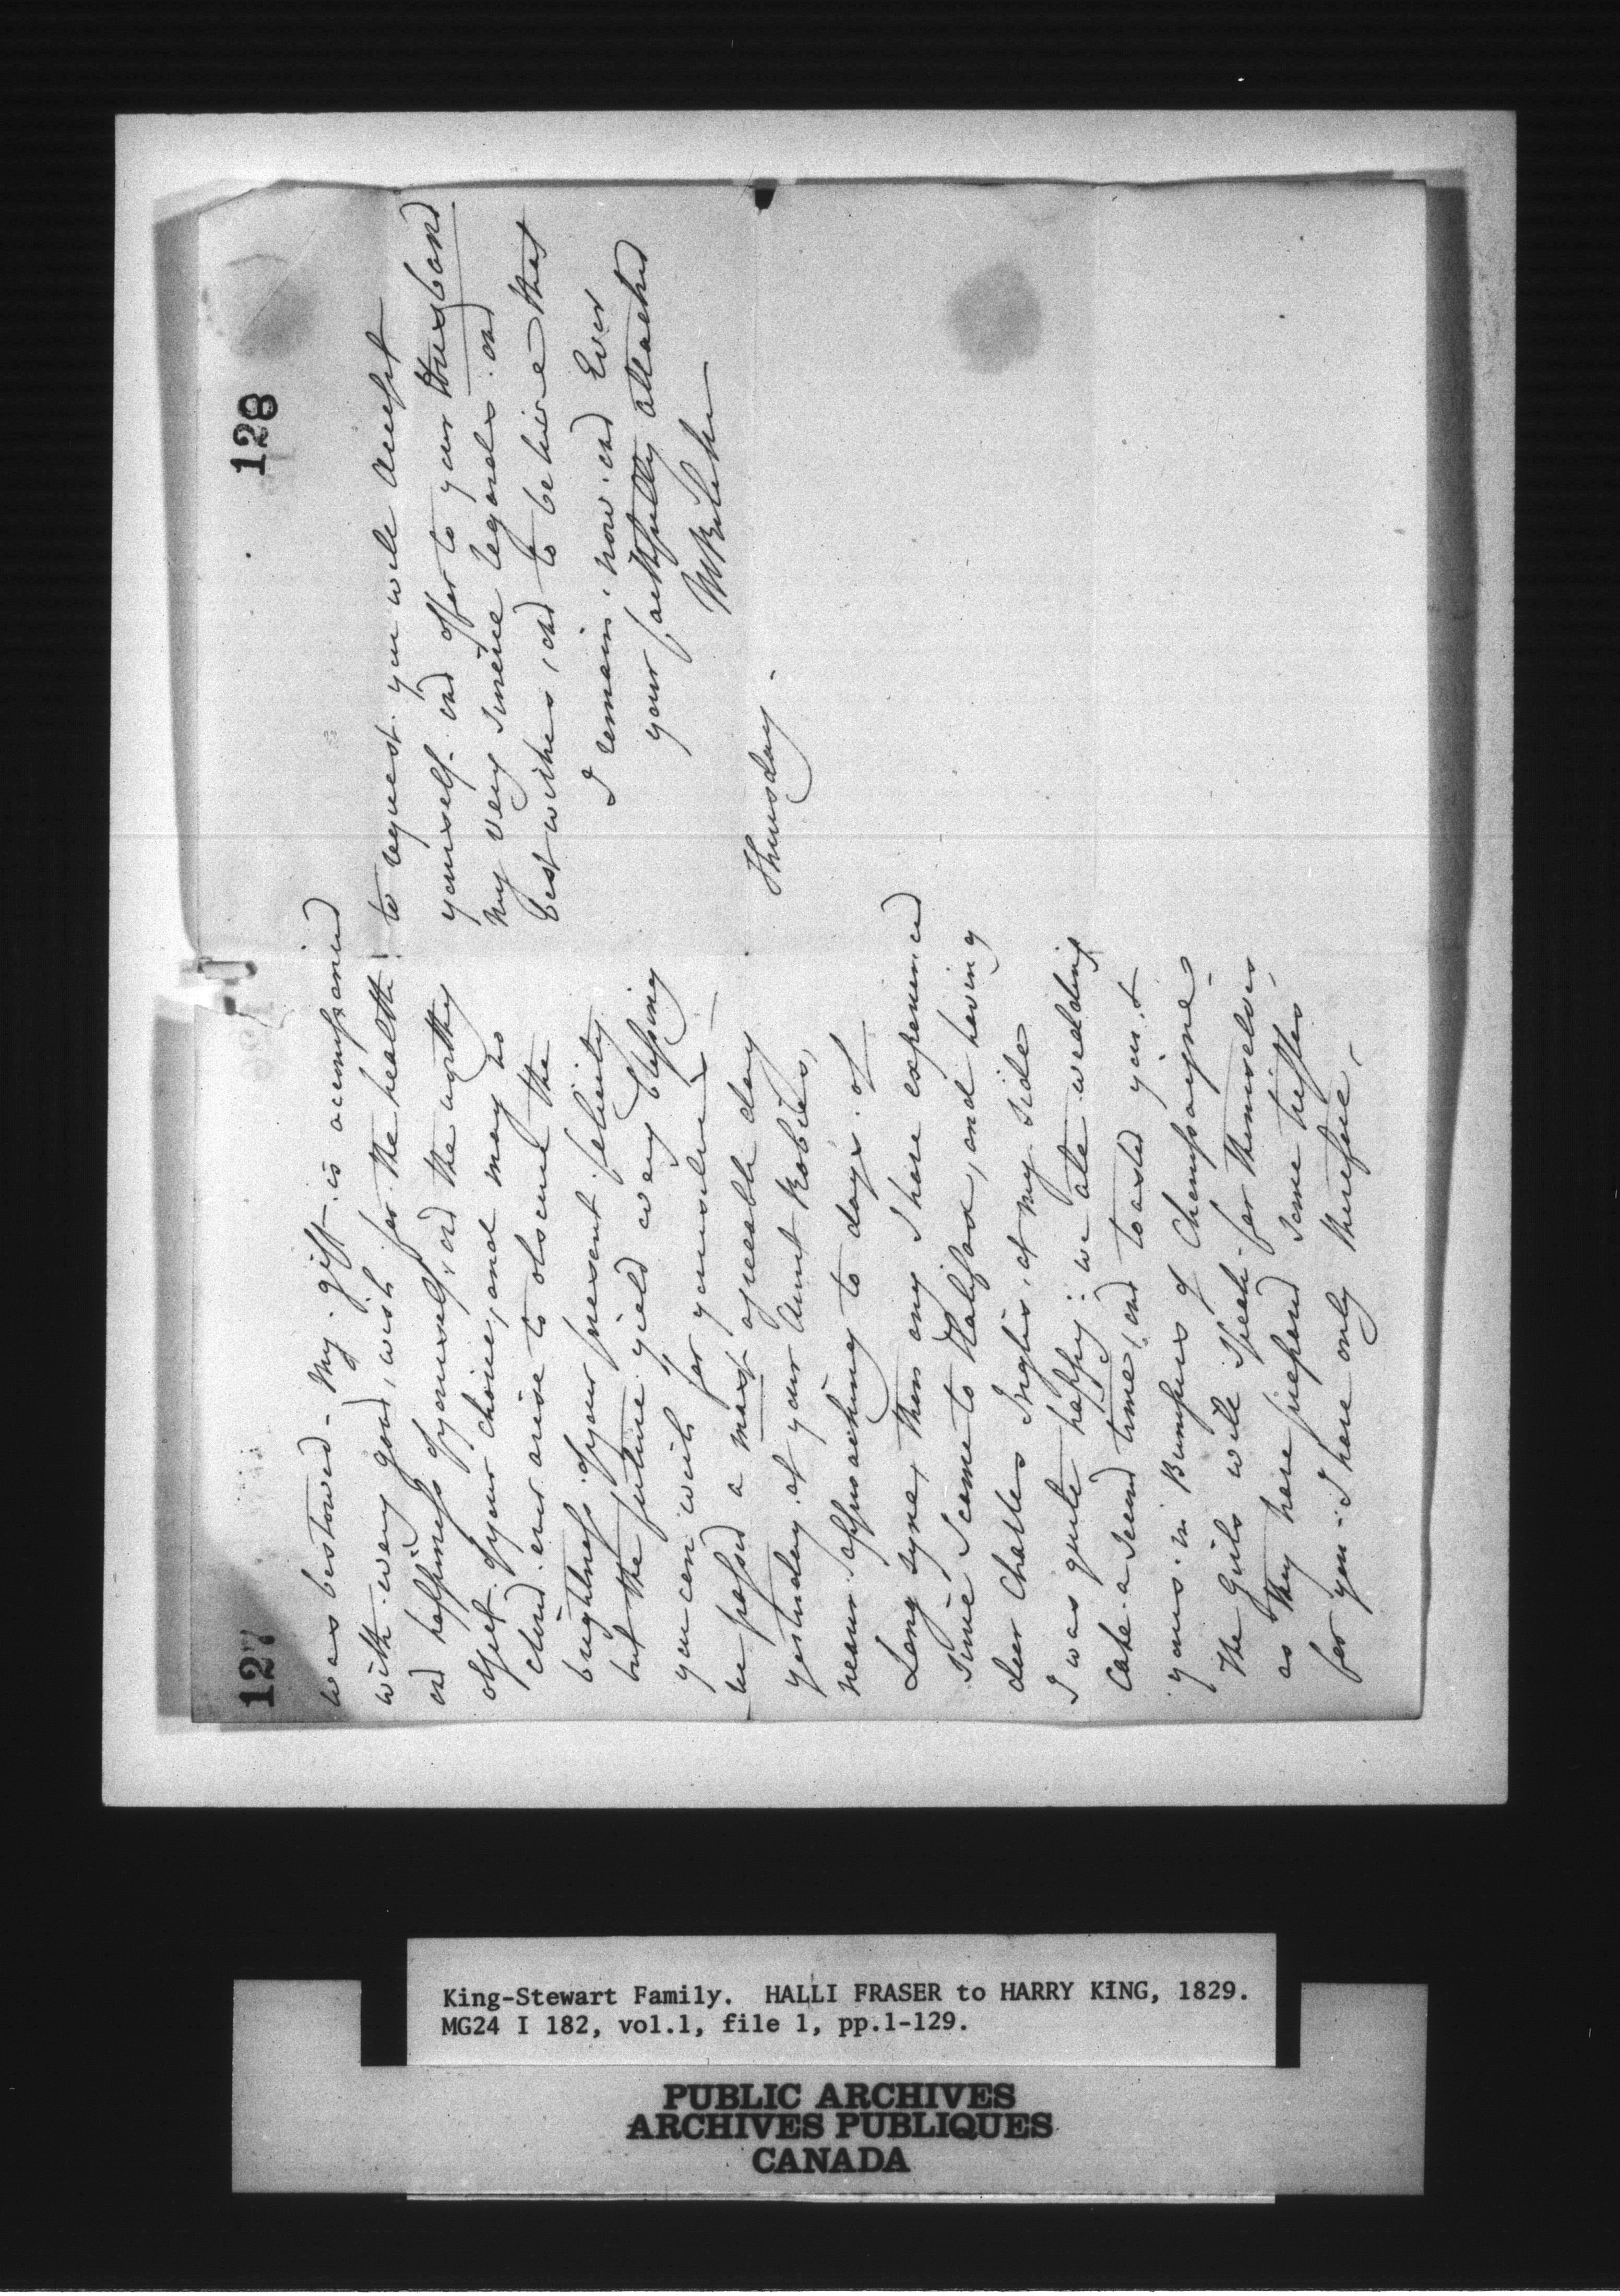 127
was bestowed - My gift is accompanied
with every good wish for the health
and happiness of yourself, and the worthy
object of your choice, and may no
cloud ever arise to obscure the
brightness of your present felicity
but the future yield every blessing
you can wish for yourselves -
we passed a most agreeable day
yesterday at your Aunt Robies,
nearer approaching to days of
Lang syne, than any I have experienced
Since I came to Halifax, and having
dear Charles Inglis, at my side
I was quite happy: we ate wedding
Cake a second time, and toasted you &
yours in Bumpers of Champaigne -
The Girls will speak for themselves,
as they have prepared some trifles
for you - I have only therefore,
128
to request you will accept
yourself and offer to your Husband
my very sincere regards and
best wishes, and to believe that
I remain, now and Ever
your faithfully attached
Thursday -
King-Stewart Family. HALLI FRASER to HARRY KING, 1829.
MG24 I 182, vol.1, file 1, pp.1-129.
PUBLIC ARCHIVES
ARCHIVES PUBLIQUES
CANADA